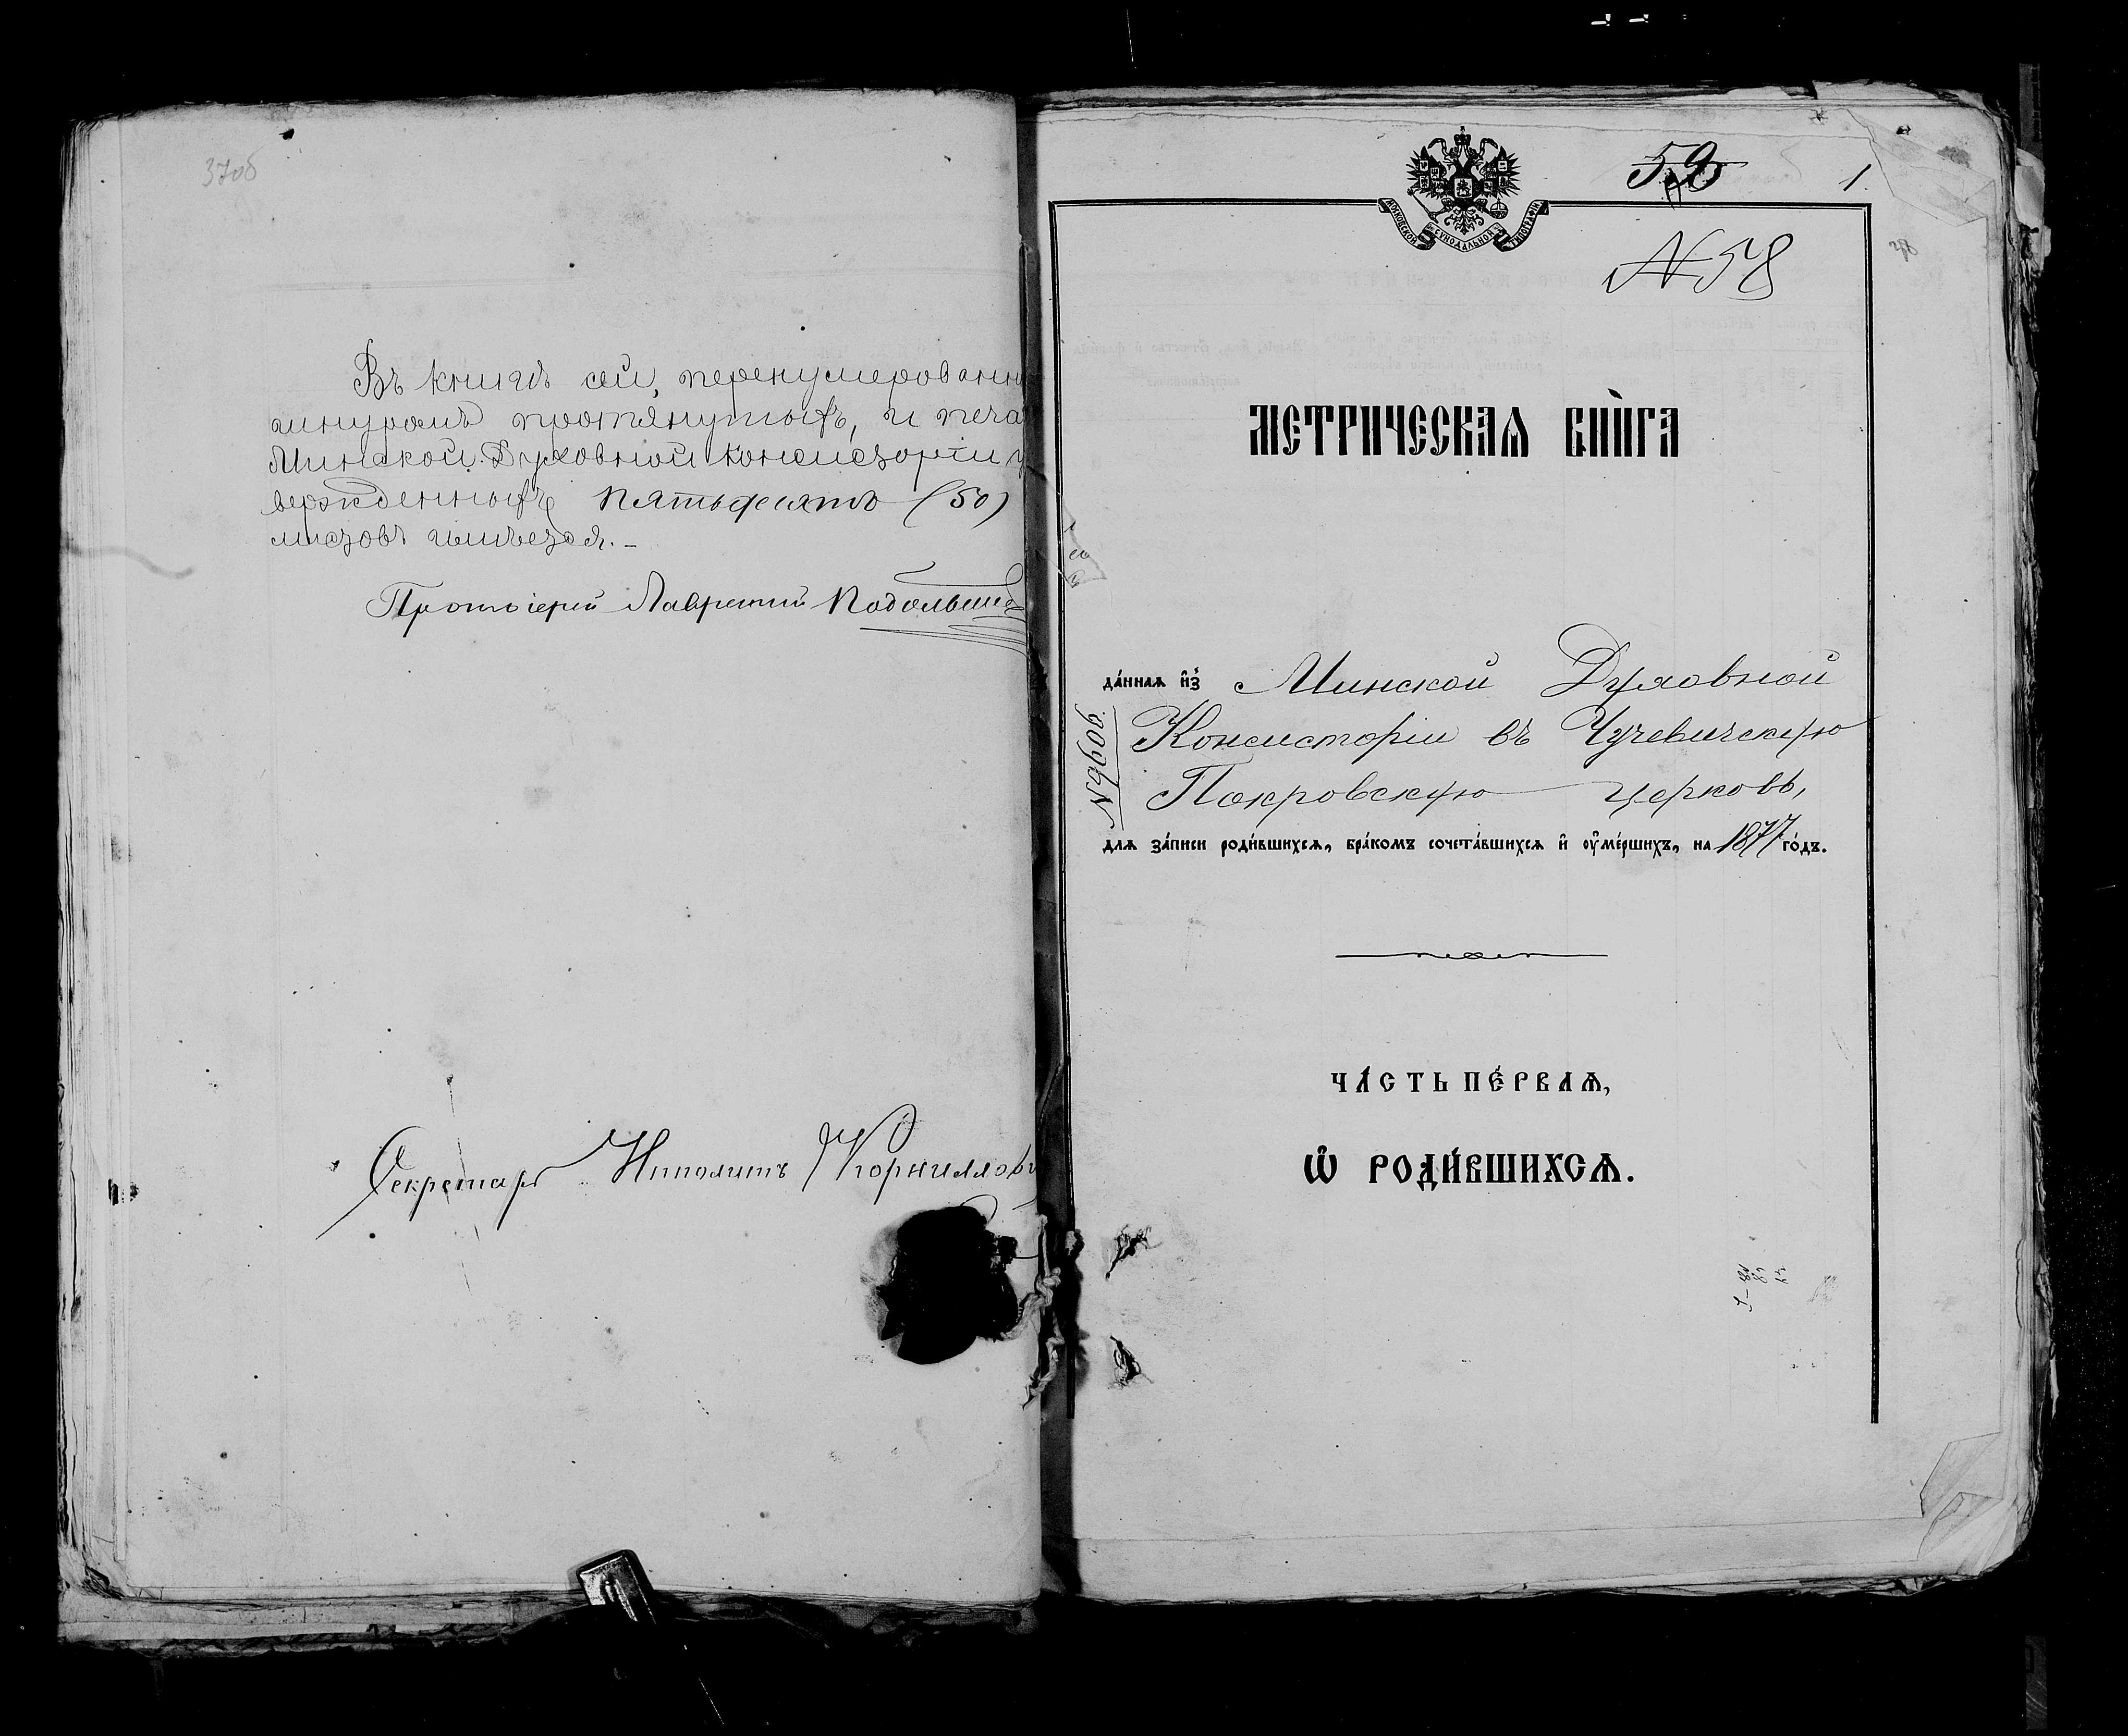 37об
Въ книгѣ сей, перенумерованн
шнуромъ протянутыхъ, и печа
Минской Духовной Консисторіи у
вержденныхъ пятьдесятъ (50)
листовъ имѣется.-
Протоіерей Лаврентий
Секретарь Ипполитъ Корнилов
МОСКОВСКОЙ СѴНОДАЛЬНОЙ ТИПОГРАФІИ
1.
№58
38
МЕТРИЧЕСКАѦ КНИГА
да́ннаѧ и҆зъ Минской Духовной
Консисторіи въ Чучевичскую
Покровскую церковь,
№9606.
длѧ за́писи роди́вшихсѧ, бра́комъ сочета́вшихсѧ и҆ оу҆ме́ршихъ, на 1877 го́дъ.
ЧА́СТЬ ПЕ́РВАѦ,
Ѽ РОДИ́ВШИХСѦ.